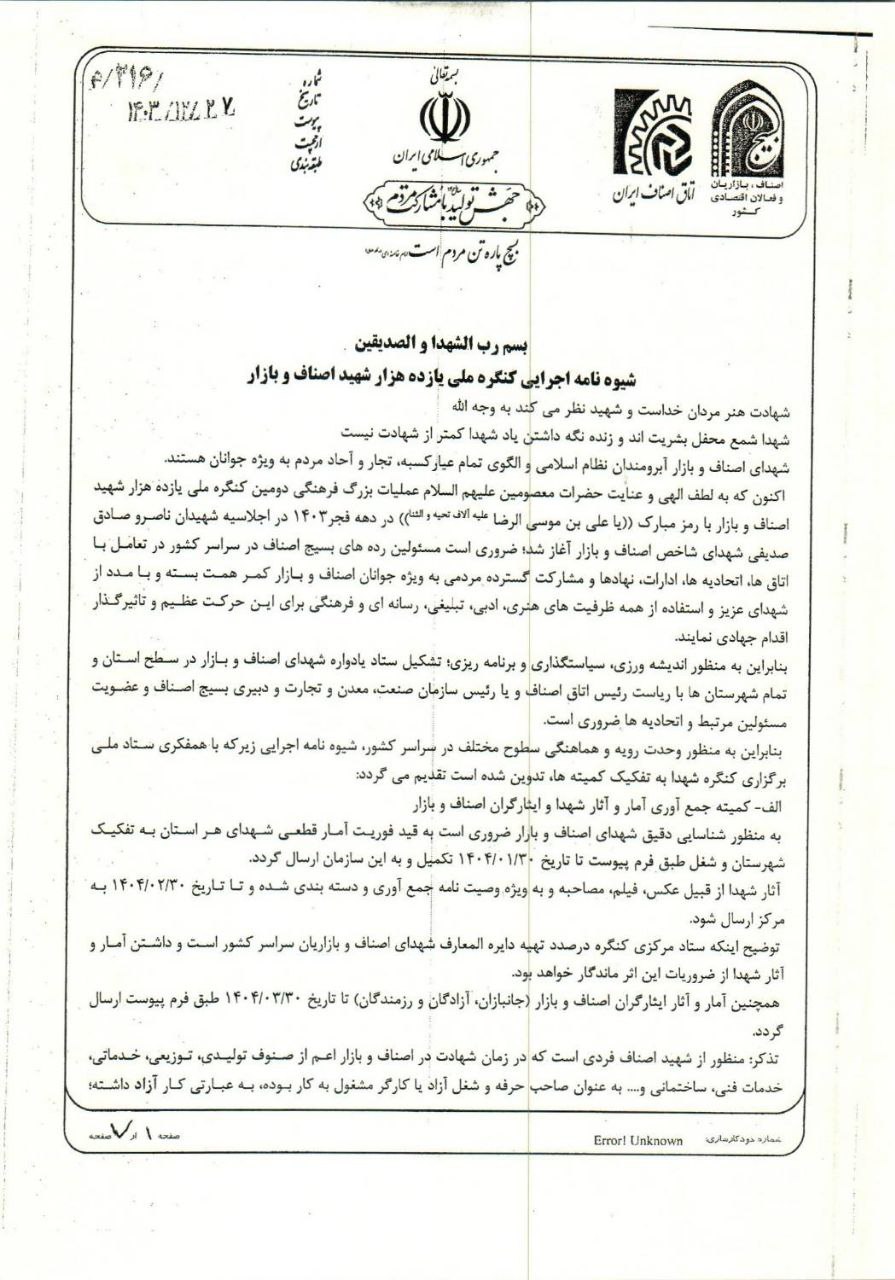 بسمه تعالی
جمهوری اسلامی ایران
جهش تولید با مشارکت مردم
بسیج
اصناف، بازاریان
و فعالان اقتصادی
کشور
اتاق اصناف ایران
شماره /۲۱۶/م
تاریخ ۱۴۰۳/۱۲/۲۷
پیوست
ارجحیت
طبقه بندی
بسیج پاره تن مردم است
بسم رب الشهدا و الصدیقین
شیوه نامه اجرایی کنگره ملی یازده هزار شهید اصناف و بازار
شهادت هنر مردان خداست و شهید نظر می کند به وجه الله
شهدا شمع محفل بشریت اند و زنده نگه داشتن یاد شهدا کمتر از شهادت نیست
شهدای اصناف و بازار آبرومندان نظام اسلامی و الگوی تمام عیارکسبه، تجار و آحاد مردم به ویژه جوانان هستند.
اکنون که به لطف الهی و عنایت حضرات معصومین علیهم السلام عملیات بزرگ فرهنگی دومین کنگره ملی یازده هزار شهید
اصناف و بازار با رمز مبارک ((یا علی بن موسی الرضا علیه آلاف تحیه و الثنا)) در دهه فجر۱۴۰۳ در اجلاسیه شهیدان ناصرو صادق
صدیفی شهدای شاخص اصناف و بازار آغاز شد؛ ضروری است مسئولین رده های بسیج اصناف در سراسر کشور در تعامل با
اتاق ها، اتحادیه ها، ادارات، نهادها و مشارکت گسترده مردمی به ویژه جوانان اصناف و بازار کمر همت بسته و با مدد از
شهدای عزیز و استفاده از همه ظرفیت های هنری، ادبی، تبلیغی، رسانه ای و فرهنگی برای این حرکت عظیم و تاثیرگذار
اقدام جهادی نمایند.
بنابراین به منظور اندیشه ورزی، سیاستگذاری و برنامه ریزی؛ تشکیل ستاد یادواره شهدای اصناف و بازار در سطح استان و
تمام شهرستان ها با ریاست رئیس اتاق اصناف و یا رئیس سازمان صنعت، معدن و تجارت و دبیری بسیج اصناف و عضویت
مسئولین مرتبط و اتحادیه ها ضروری است.
بنابراین به منظور وحدت رویه و هماهنگی سطوح مختلف در سراسر کشور، شیوه نامه اجرایی زیرکه با همفکری ستاد ملی
برگزاری کنگره شهدا به تفکیک کمیته ها، تدوین شده است تقدیم می گردد:
الف- کمیته جمع آوری آمار و آثار شهدا و ایثارگران اصناف و بازار
به منظور شناسایی دقیق شهدای اصناف و بازار ضروری است به قید فوریت آمار قطعی شهدای هر استان به تفکیک
شهرستان و شغل طبق فرم پیوست تا تاریخ ۱۴۰۴/۰۱/۳۰ تکمیل و به این سازمان ارسال گردد.
آثار شهدا از قبیل عکس، فیلم، مصاحبه و به ویژه وصیت نامه جمع آوری و دسته بندی شده و تا تاریخ ۱۴۰۴/۰۲/۳۰ به
مرکز ارسال شود.
توضیح اینکه ستاد مرکزی کنگره درصدد تهیه دایره المعارف شهدای اصناف و بازاریان سراسر کشور است و داشتن آمار و
آثار شهدا از ضروریات این اثر ماندگار خواهد بود.
همچنین آمار و آثار ایثارگران اصناف و بازار (جانبازان، آزادگان و رزمندگان) تا تاریخ ۱۴۰۴/۰۳/۳۰ طبق فرم پیوست ارسال
گردد.
تذکر: منظور از شهید اصناف فردی است که در زمان شهادت در اصناف و بازار اعم از صنوف تولیدی، توزیعی، خدماتی،
خدمات فنی، ساختمانی و.... به عنوان صاحب حرفه و شغل آزاد یا کارگر مشغول به کار بوده، به عبارتی کار آزاد داشته؛
شماره دودکارسازی: Error! Unknown
صفحه ۱ از ۷ صفحه